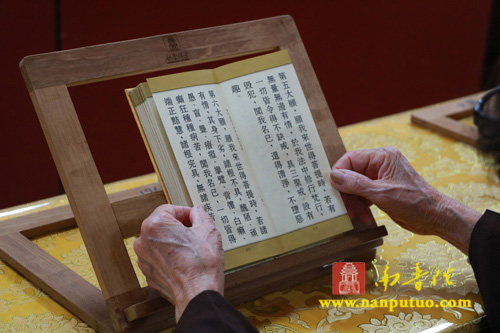 第五大願，願我來世得菩提時，若有
無量無邊有情，於我法中修行梵行，
一切皆令得不缺戒，具三聚戒，設有
毀犯，聞我名已，還得清淨，不墮惡
趣。
第六大願，願我來世得菩提時，若諸
有情，其身下劣，諸根不具，醜陋、頑
愚、盲、聾、瘖、瘂、攣躄、背僂、白癩、
癲狂種種病苦，聞我名已，一切皆得
端正黠慧，諸根完具，無諸疾
南普陀
www.nanputuo.com